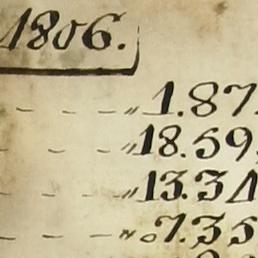 1806.
- - - - " 1.87
- - - " 18.59
- - - - " 13.34
- - - - " 0.7.35